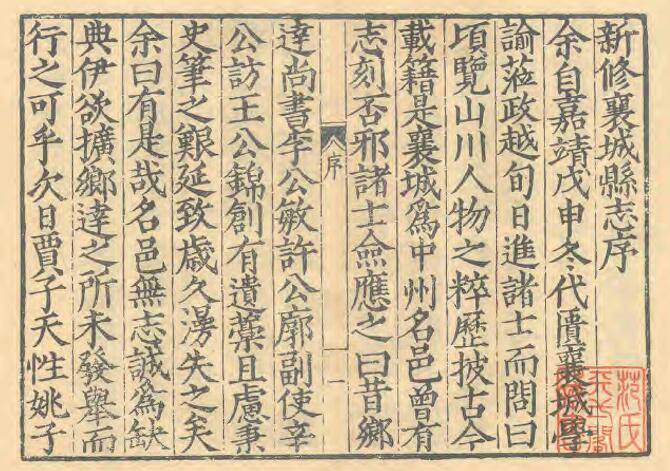 新修襄城縣志序
余自嘉靖戊申冬代匱襄城學
諭蒞政越旬日進諸士而問曰
頃覽山川人物之粹歷披古今
載籍是襄城爲中州名邑曾有
志刻否邪諸士僉應之曰昔鄉
序
一
達尚書李公敏許公廓副使辛
公訪王公錦創有遺藳且慮秉
史筆之艱延致歲久湮失之矣
余曰有是哉名邑無志誠爲缺
典伊欲擴鄉達之所未發舉而
行之可乎次日賈子天性姚子
范氏
天一閣